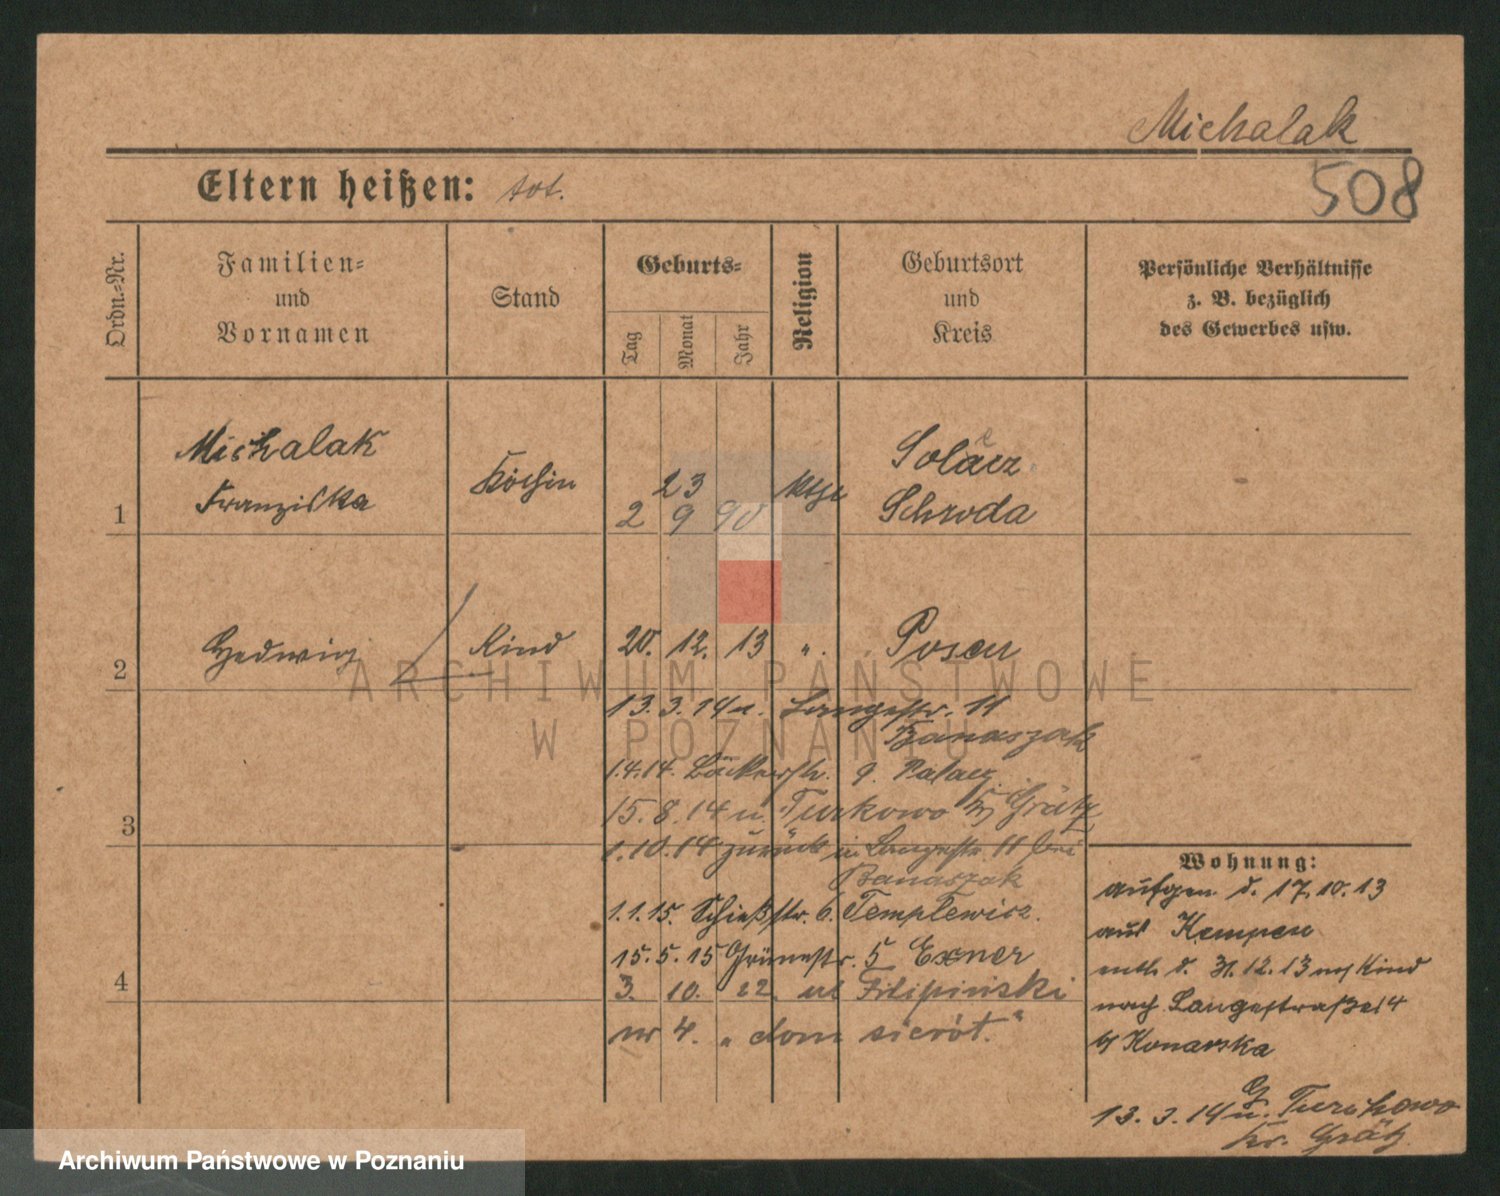 Michalak
508
Eltern heißen: tot.
Ordn.-Nr.
Familien-
und
Vornamen
Stand
Geburts-
Tag
Monat
Jahr
Religion
Geburtsort
und
Kreis
Persönliche Verhältnisse
z. B. bezüglich
des Gewerbes usw.
1
Michalak
Franziska
Köchin
23
2 9 90
ktha
Solacz
Schroda
2
Hedwig
Kind
20. 12. 13 ". Posen
13. 3. 14 u. Langestr. 11
Banaszak
1.4.14. Bäckerstr. 9. Palacz
3
15. 8. 14 u. Turkowo Grätz
1.10.14 zurück in Langestr 11 bei
Banaszak
1.1.15. Schießstr. 6. Templewicz.
15. 5. 15 Grünestr. 5 Exner
4
3. 10. 22 ul Filipiński
nr 4. „dom sierót."
Wohnung:
aufgen. d. 17.10.13
aus Kempen
entb. d. 31.12.13 Kind
nach Langestraße 14
b/ Konarska
13. 3. 14 u. Turkowo
Kr. Grätz.
ARCHIWUM PAŃSTWOWE
W POZNANIU
Archiwum Państwowe w Poznaniu